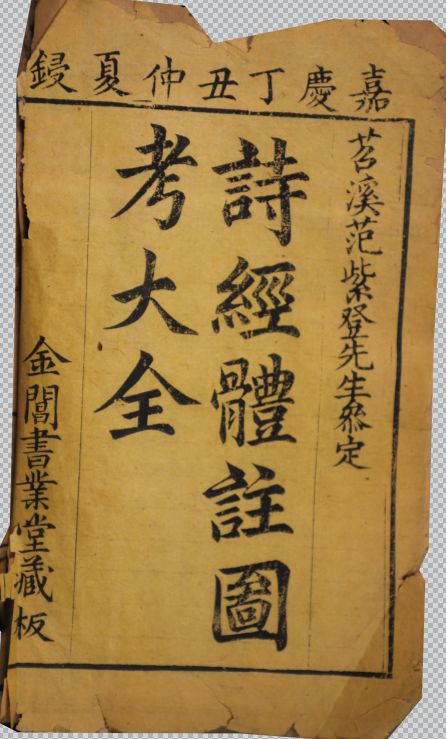 嘉慶丁丑仲夏鋟
苕溪范紫登先生叅定
詩經體註圖
考大全
金閶書業堂藏板